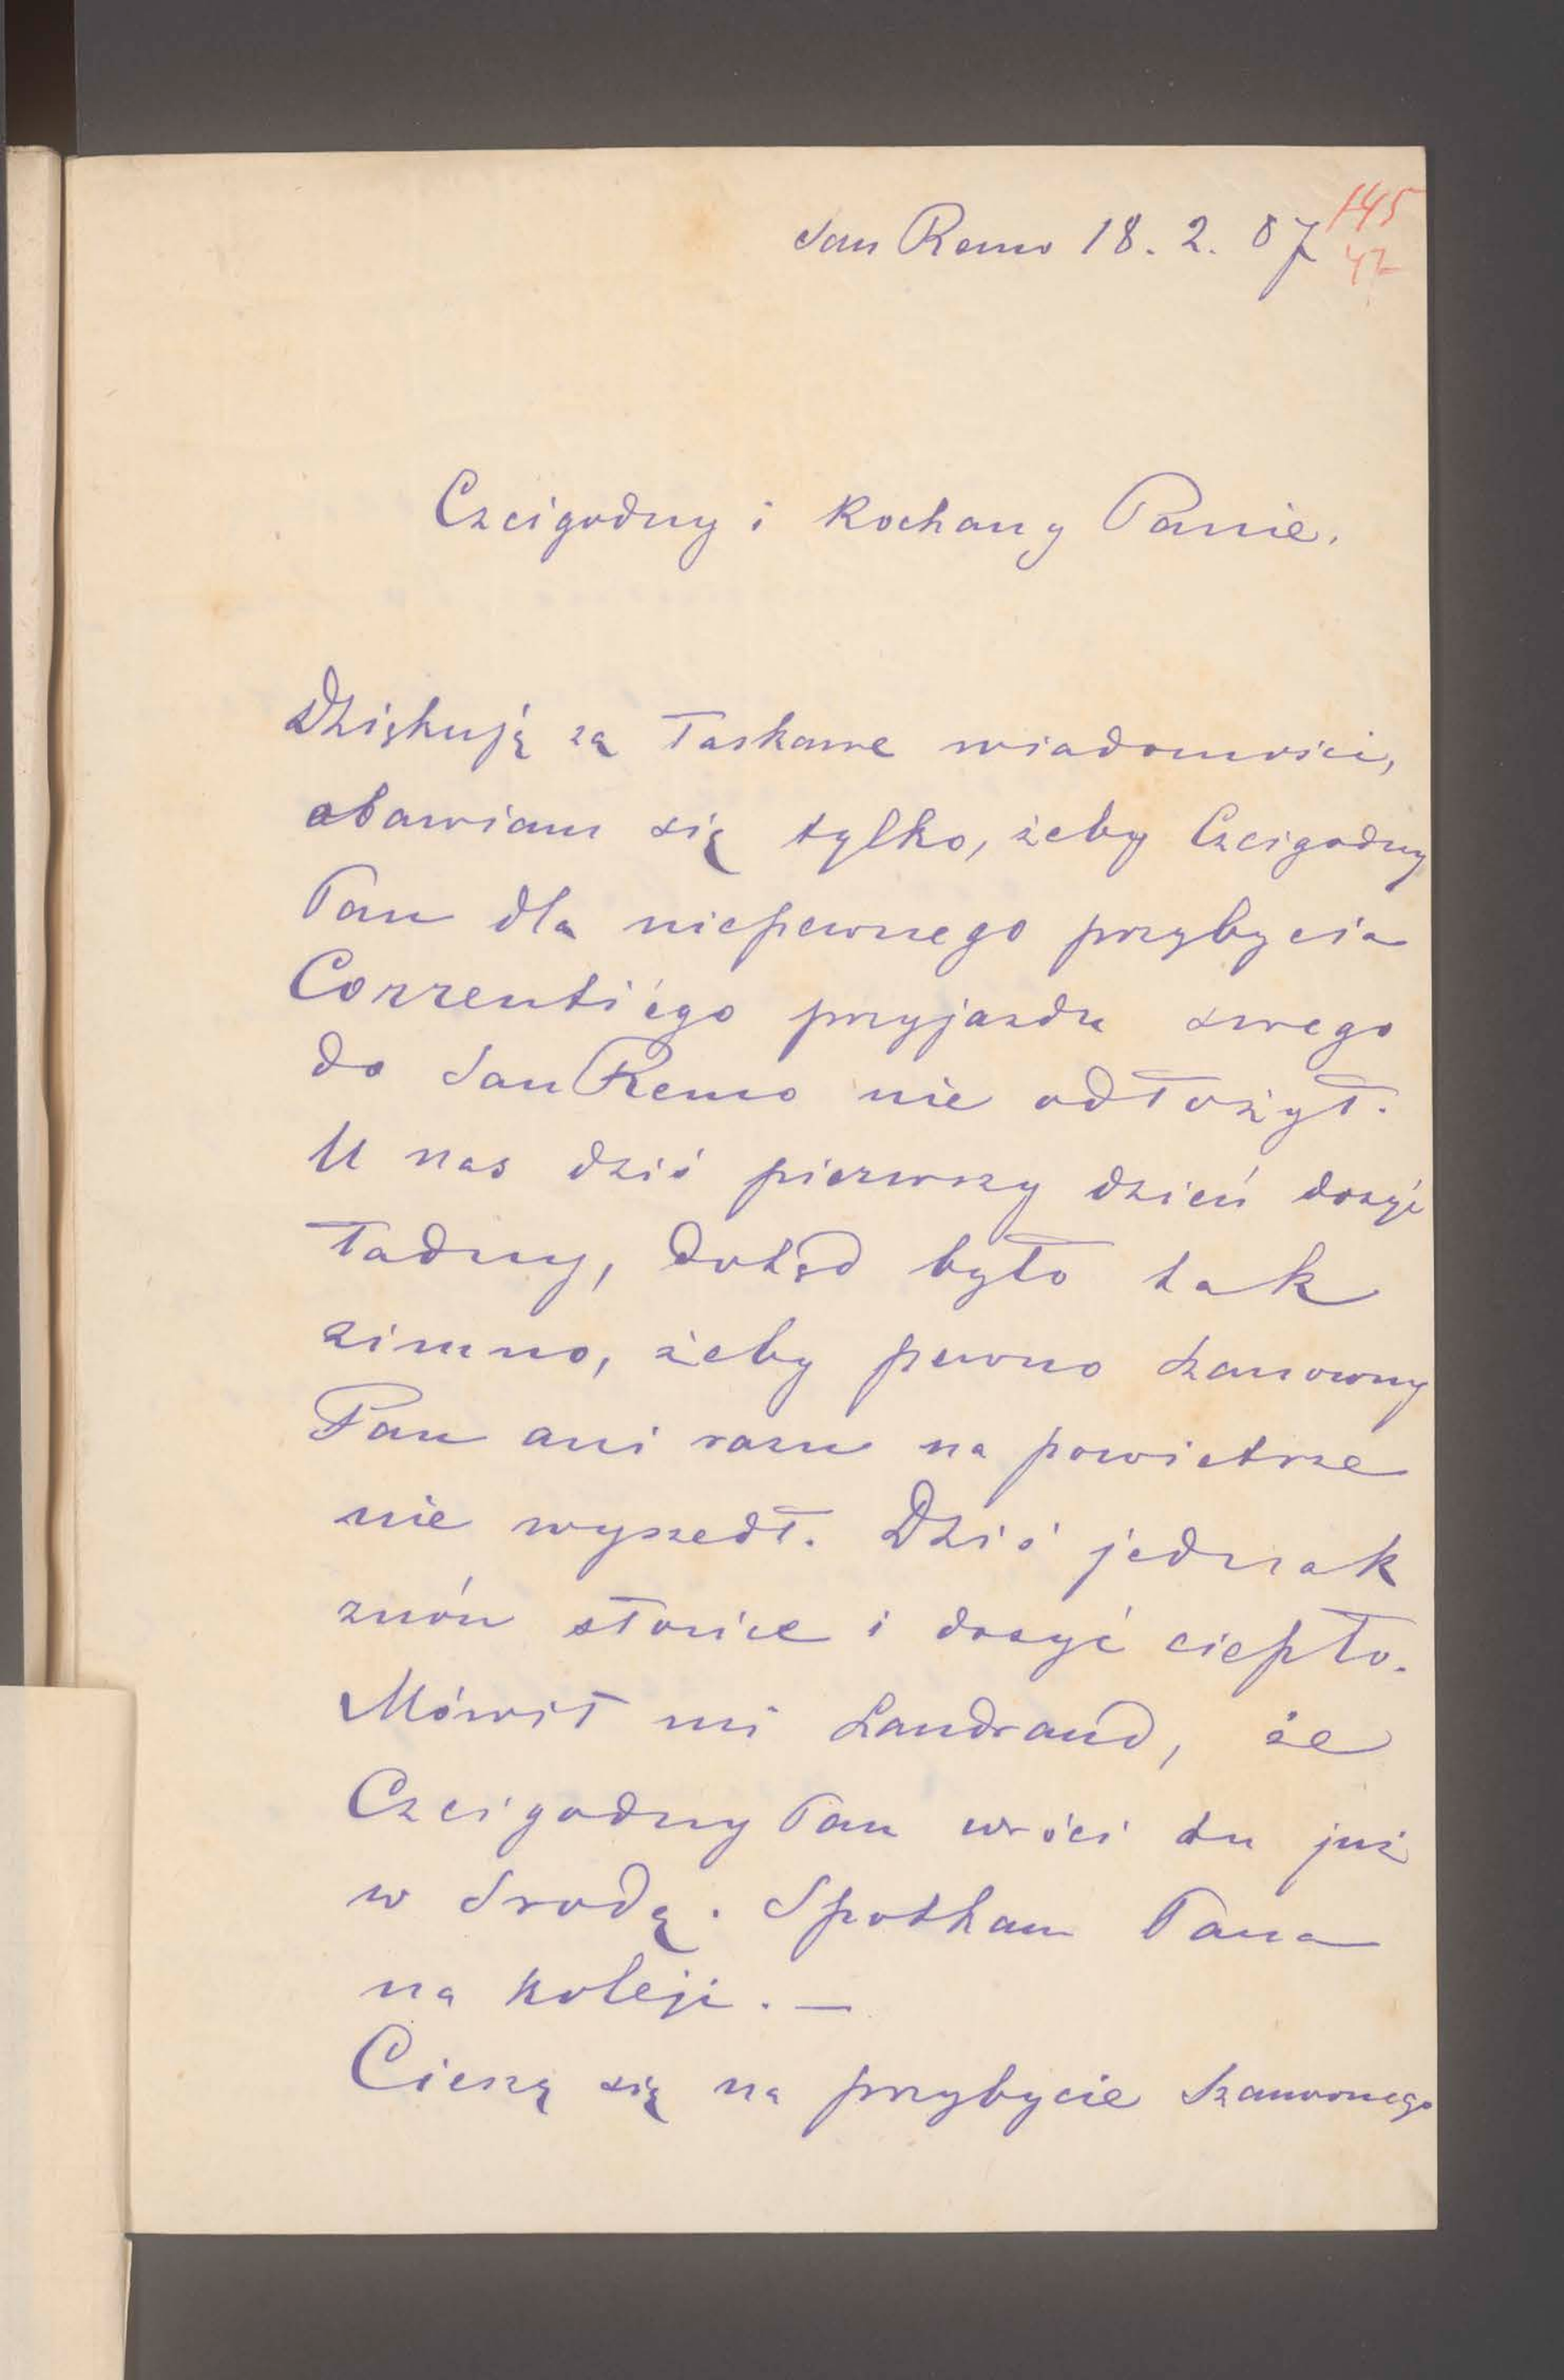 San Remo 18. 2. 87
145
42
Czcigodny i kochany Panie.
Dziękuję za łaskawe wiadomości,
obawiam się tylko, żeby Czcigodny
Pan dla niepewnego przybycia
Correnti'ego przyjazdu swego
do San Remo nie odłożył.
U nas dziś pierwszy dzień dosyć
ładny, dotąd było tak
zimno, żeby pewno Szanowny
Pan ani razu na powietrze
nie wyszedł. Dziś jednak
znów słońce i dosyć ciepło.
Mówił mi Landrand, że
Czcigodny Pan wróci tu już
w Srodę. Spotkam Pana
na koleji. —
Cieszę się na przybycie Szanownego